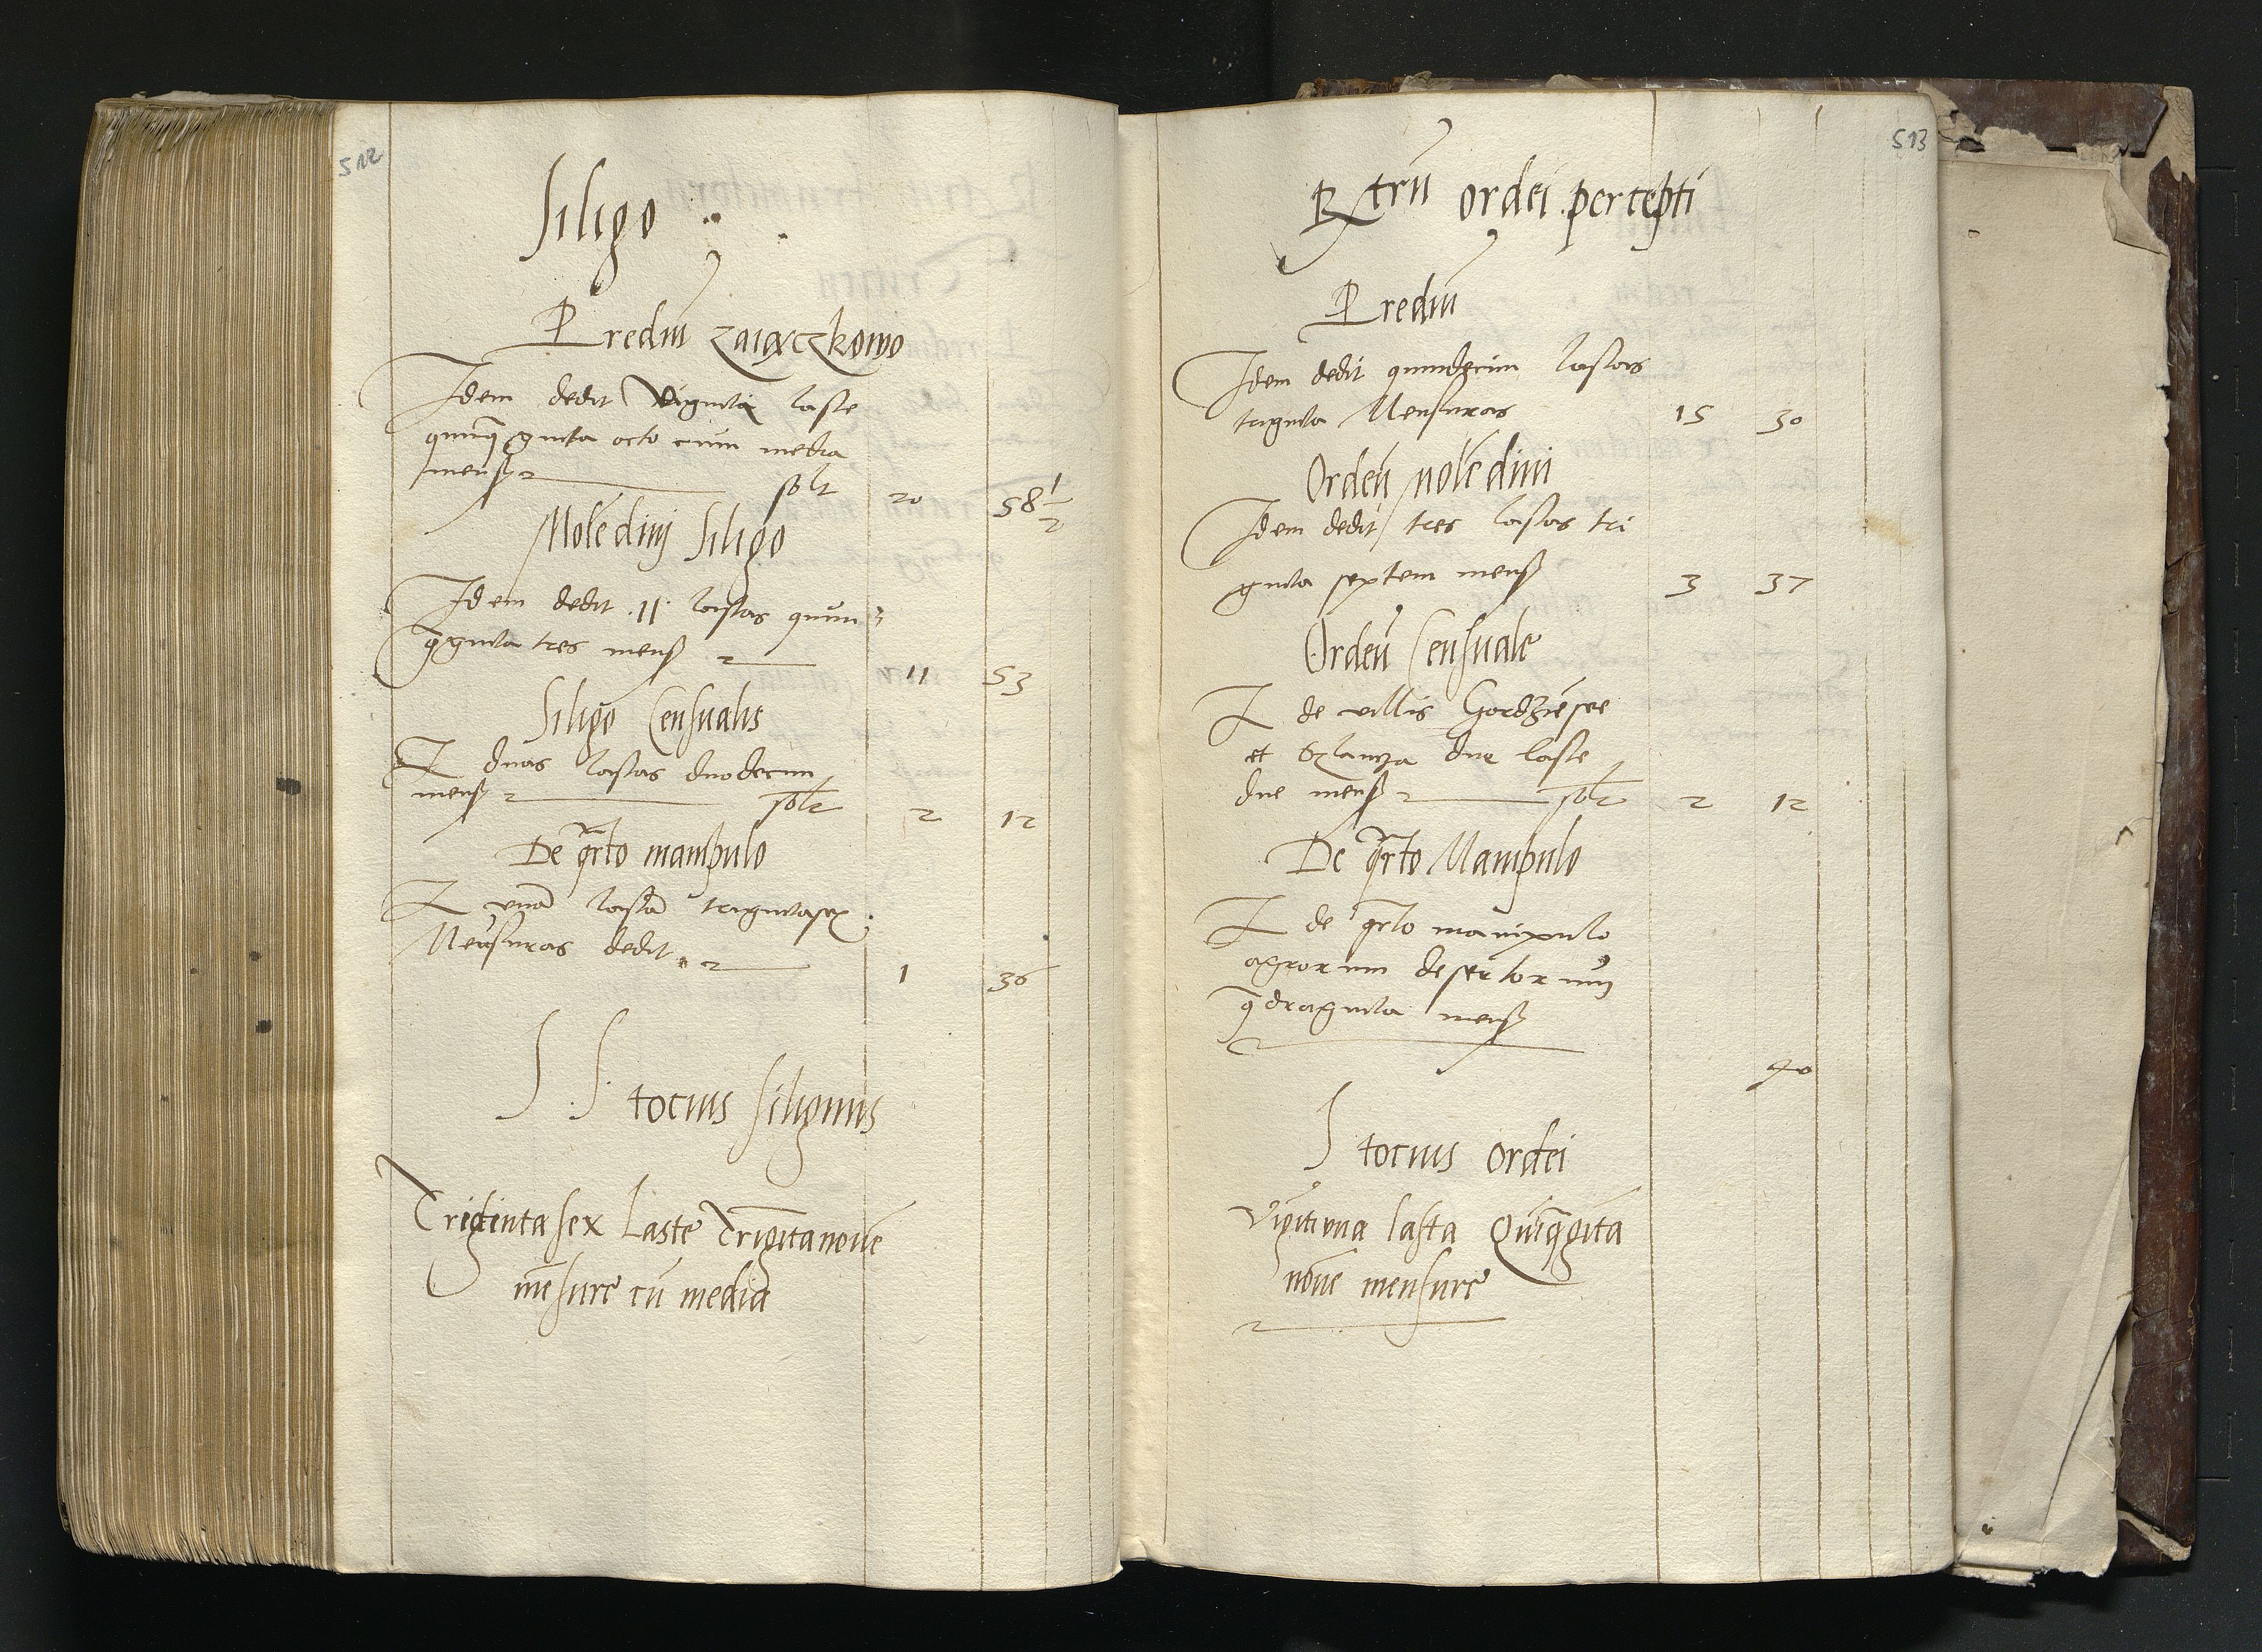 512
Siligo
Prediu zaiączkowo
Idem dedit Viginta laste
quinqginta octo cum media
mens solt 20 58 1/2
Molediny Siligo
Idem dedit 11 lastas quin
qginta tres mens 11 53
Siligo Censualis
It duas lastas duodecim
mens solt 2 12
De qrto manipulo
It una lasta trigintasex
Mensuras dedit 1 36
S S tocius siliginis
Trigintasex Laste Trigitanoue
mesure cu media
513
Rxtru ordei percepti
Prediu
Idem dedit quindecim lastas
triginta Mensuras 15 30
Ordeu moledini
Idem dedit tres lastas tri
ginta septem mens 3 37
Ordeu Censuale
It de villis
et due laste
due mens solt 2 12
De qrto Manipulo
It de qrto manipulo
agrorum desertorum
qdraginta mens
40
S tocius ordei
Vigitiuna lasta Quiqgita
noue mensure